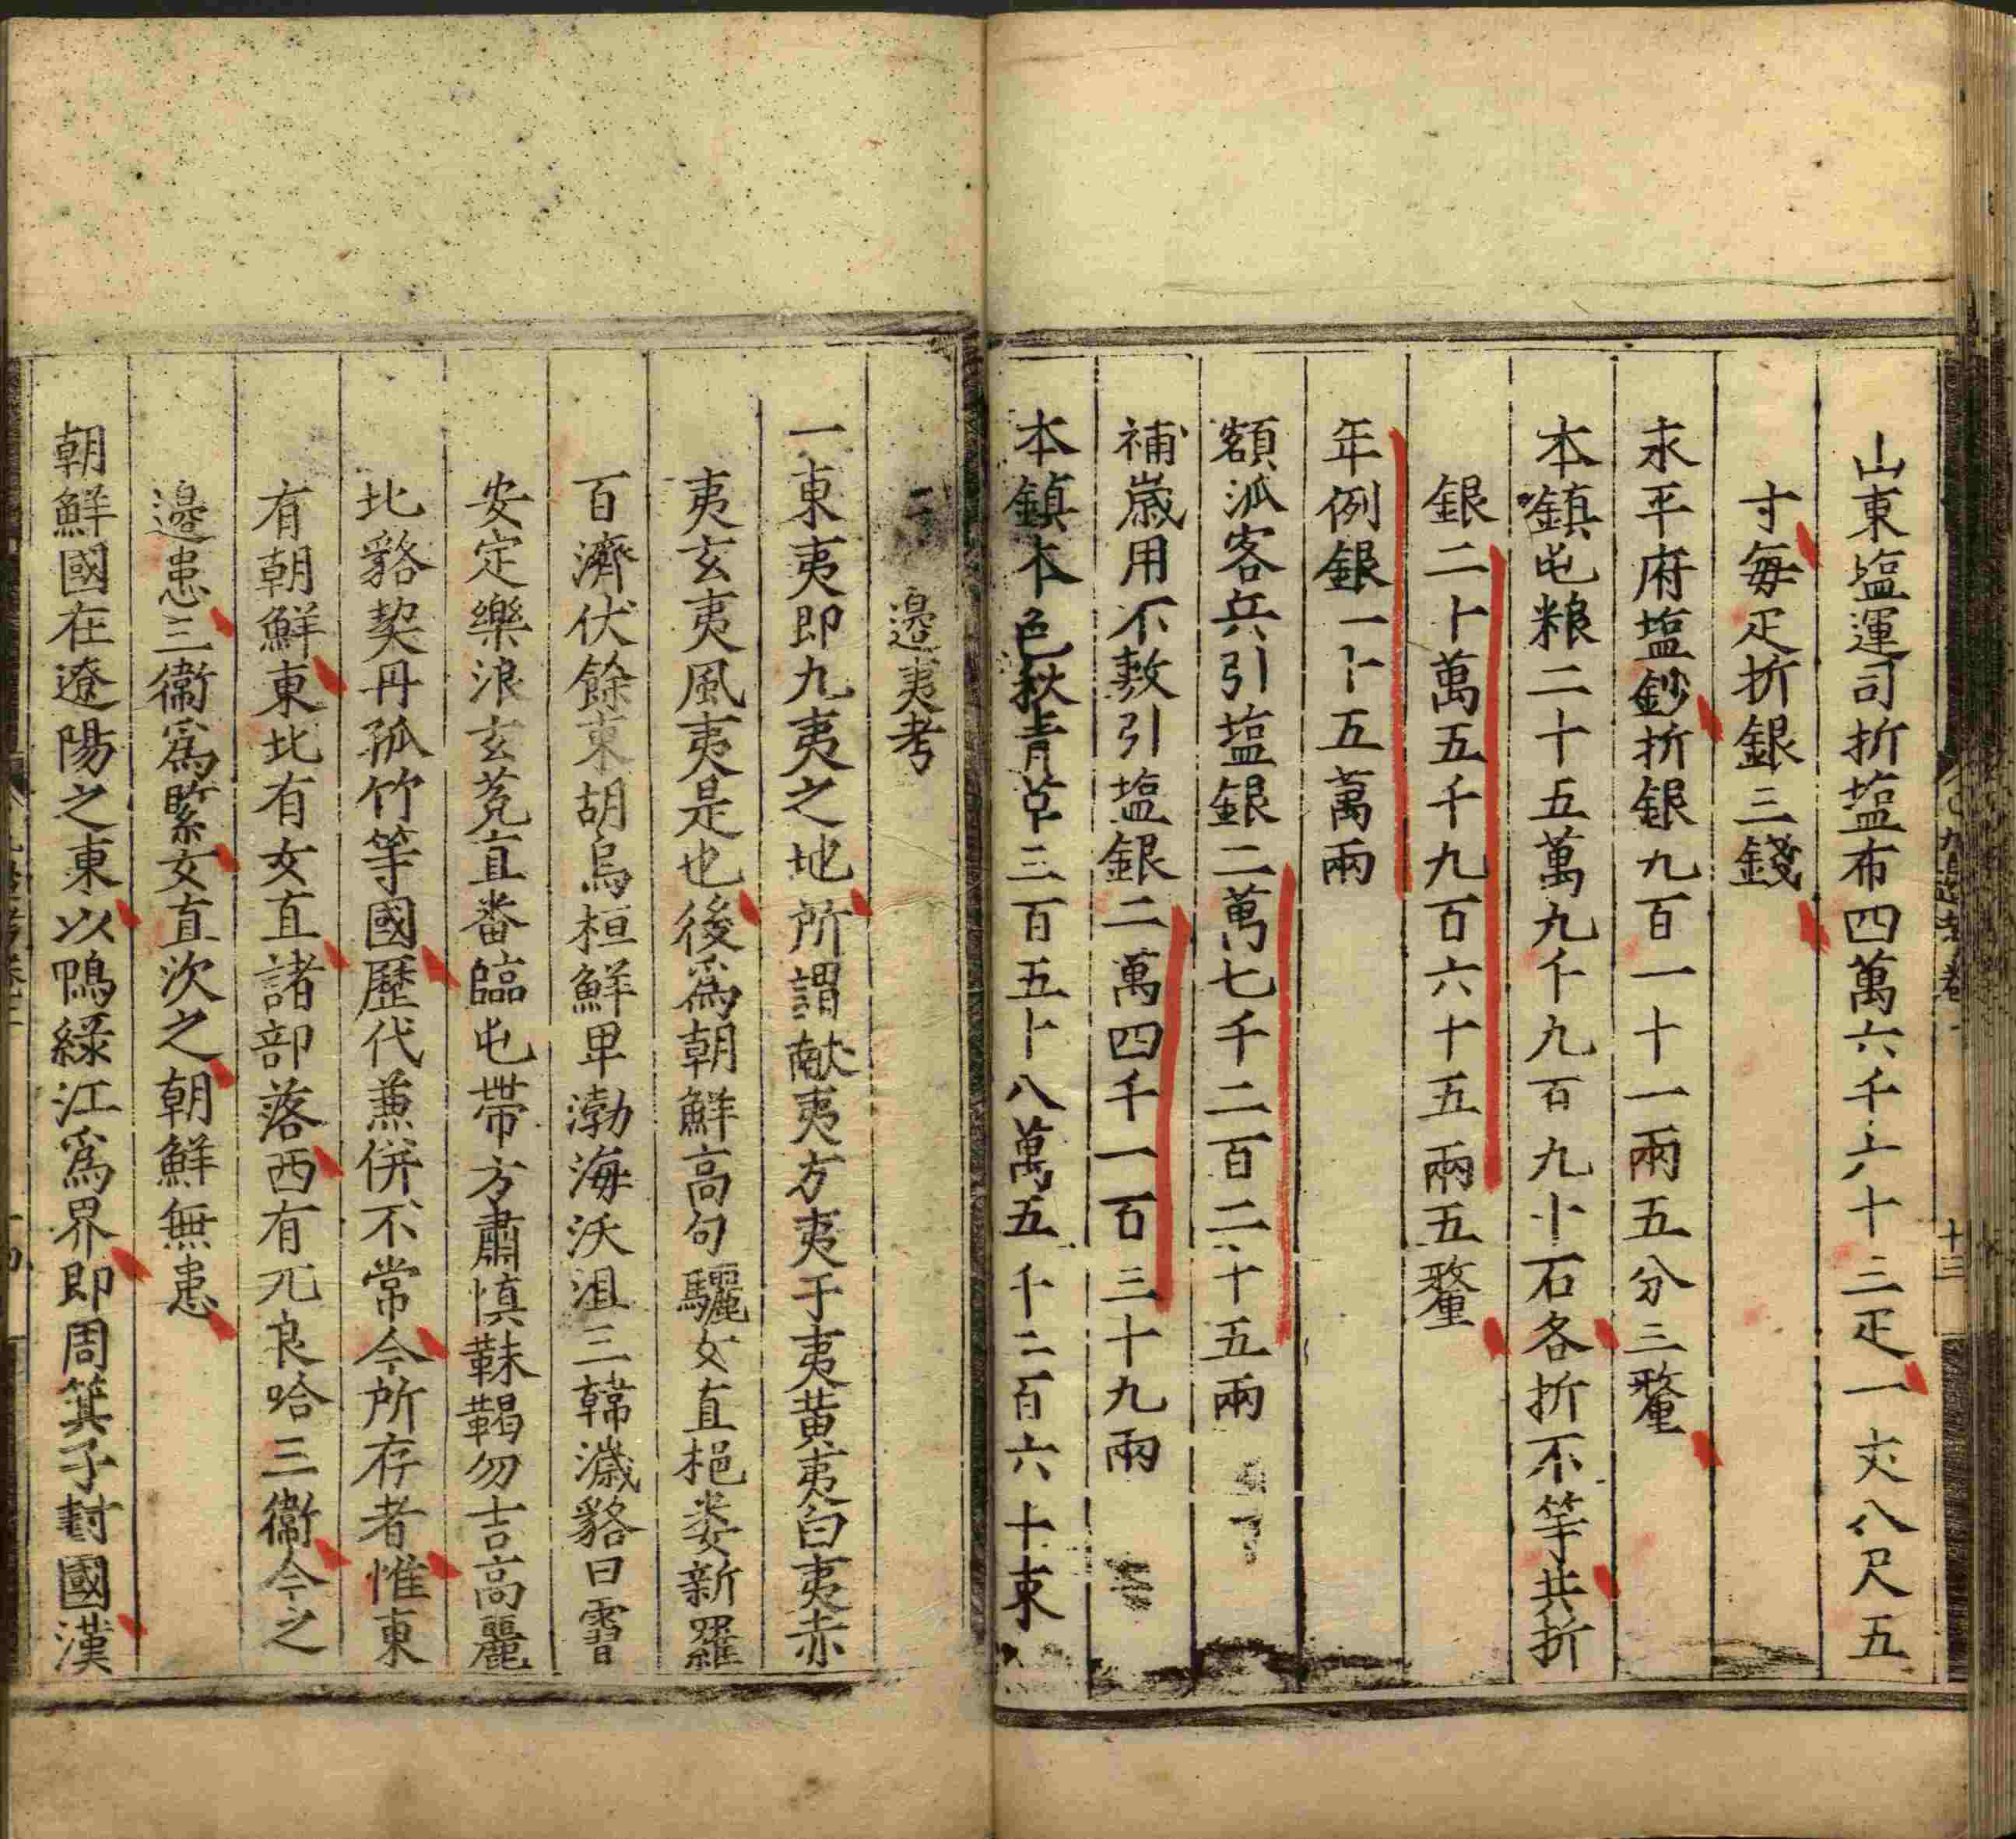 山東塩運司折塩布四萬六千六十三疋一丈八尺五
寸毎疋折銀三錢
永平府塩鈔折銀九百一十一兩五分三釐
本鎮屯粮二十五萬九千九百九十石各折不等共折
銀二十萬五千九百六十五兩五釐
年例銀一十五萬兩
額派客兵引塩銀二萬七千二百二十五兩
補歲用不敷引塩銀二萬四千一百三十九兩
本鎮本色秋青草三百五十八萬五千二百六十束
邊夷考
一東夷即九夷之地所謂畎夷方夷于夷黄夷白夷赤
夷玄夷風夷是也後爲朝鮮高句驪女直挹婁新羅
百濟伏餘東胡烏桓鮮卑渤海沃沮三韓濊貉曰霫
安定樂浪玄菟直番臨屯帶方肅慎靺鞨勿吉高麗
北貉契丹孤竹等國歷代兼併不常今所存者惟東
有朝鮮東北有女直諸部落西有兀良哈三衞今之
邊患三衞爲緊女直次之朝鮮無患
朝鮮國在遼陽之東以鴨緑江爲界即周箕子封國漢
十三